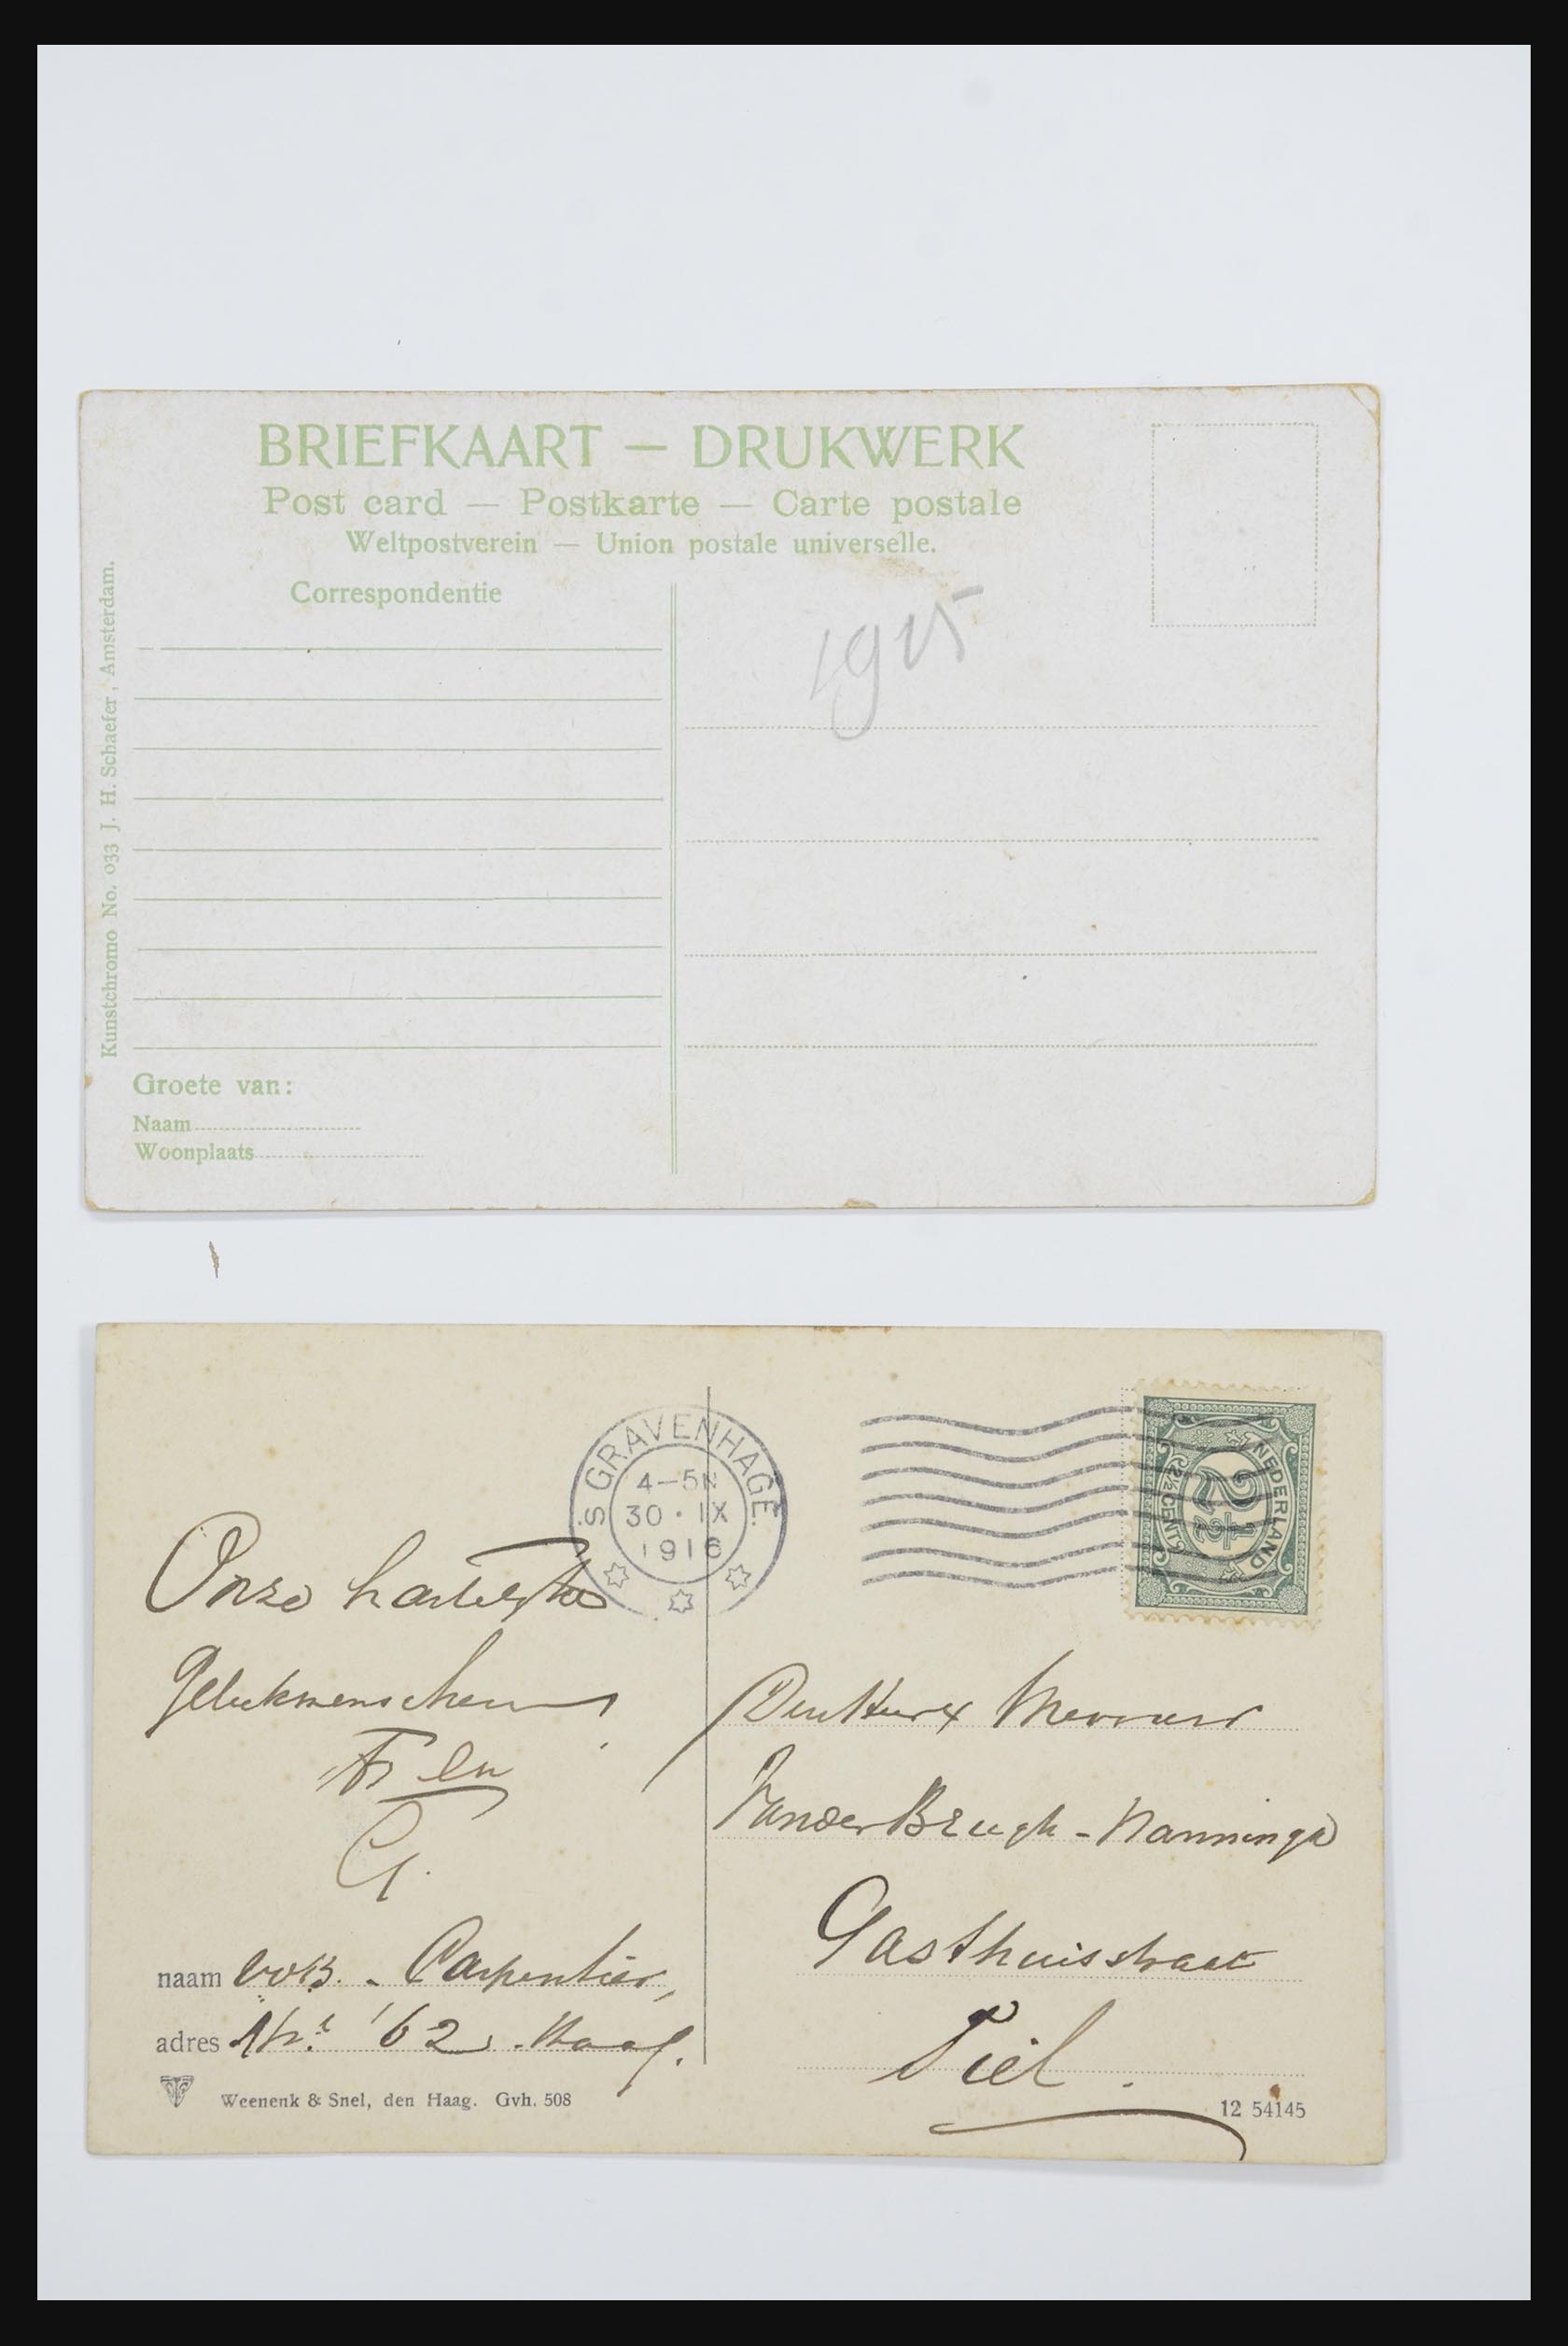 BRIEFKAART — DRUKWERK
Post card — Postkarte — Carte postale
Weltpostverein — Union postale universelle.
Correspondentie
Kunstchromo No. 033 J. H. Schaefer, Amsterdam.
Groete van:
Naam
Woonplaats
'S GRAVENHAGE.
4—5N
30 · IX
1916
NEDERLAND
2½
2½ CENT
Onze hartelijke
Gelukwenschen
en
G.
naam Carpentier,
adres 62 Haag.
Weenenk & Snel, den Haag. Gvh. 508
Mevrouw
Van der Brugh - Nanninga
Gasthuisstraat
Tiel.
12 54145